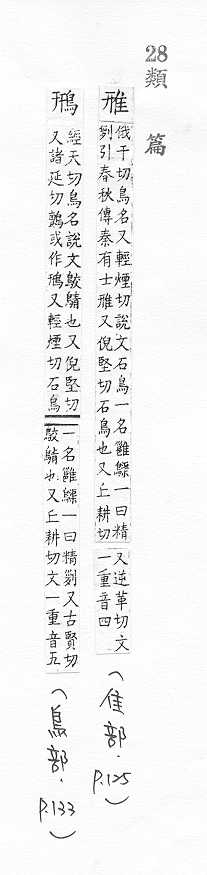 28
類篇
雃
俄干切鳥名又輕煙切說文石鳥一名雝一曰精
列引春秋傳秦有士雃又倪堅切石鳥也又丘耕切
又逆革切文
一重音四
(隹部.
P.125)
鳽
經天切鳥名說文鵁鶄也又倪堅切
又諸延切鸇或作鳽又輕煙切石鳥
一名雝一曰精列又古賢切
鵁鶄也又丘耕切文一重音五
(鳥部.
P.133)